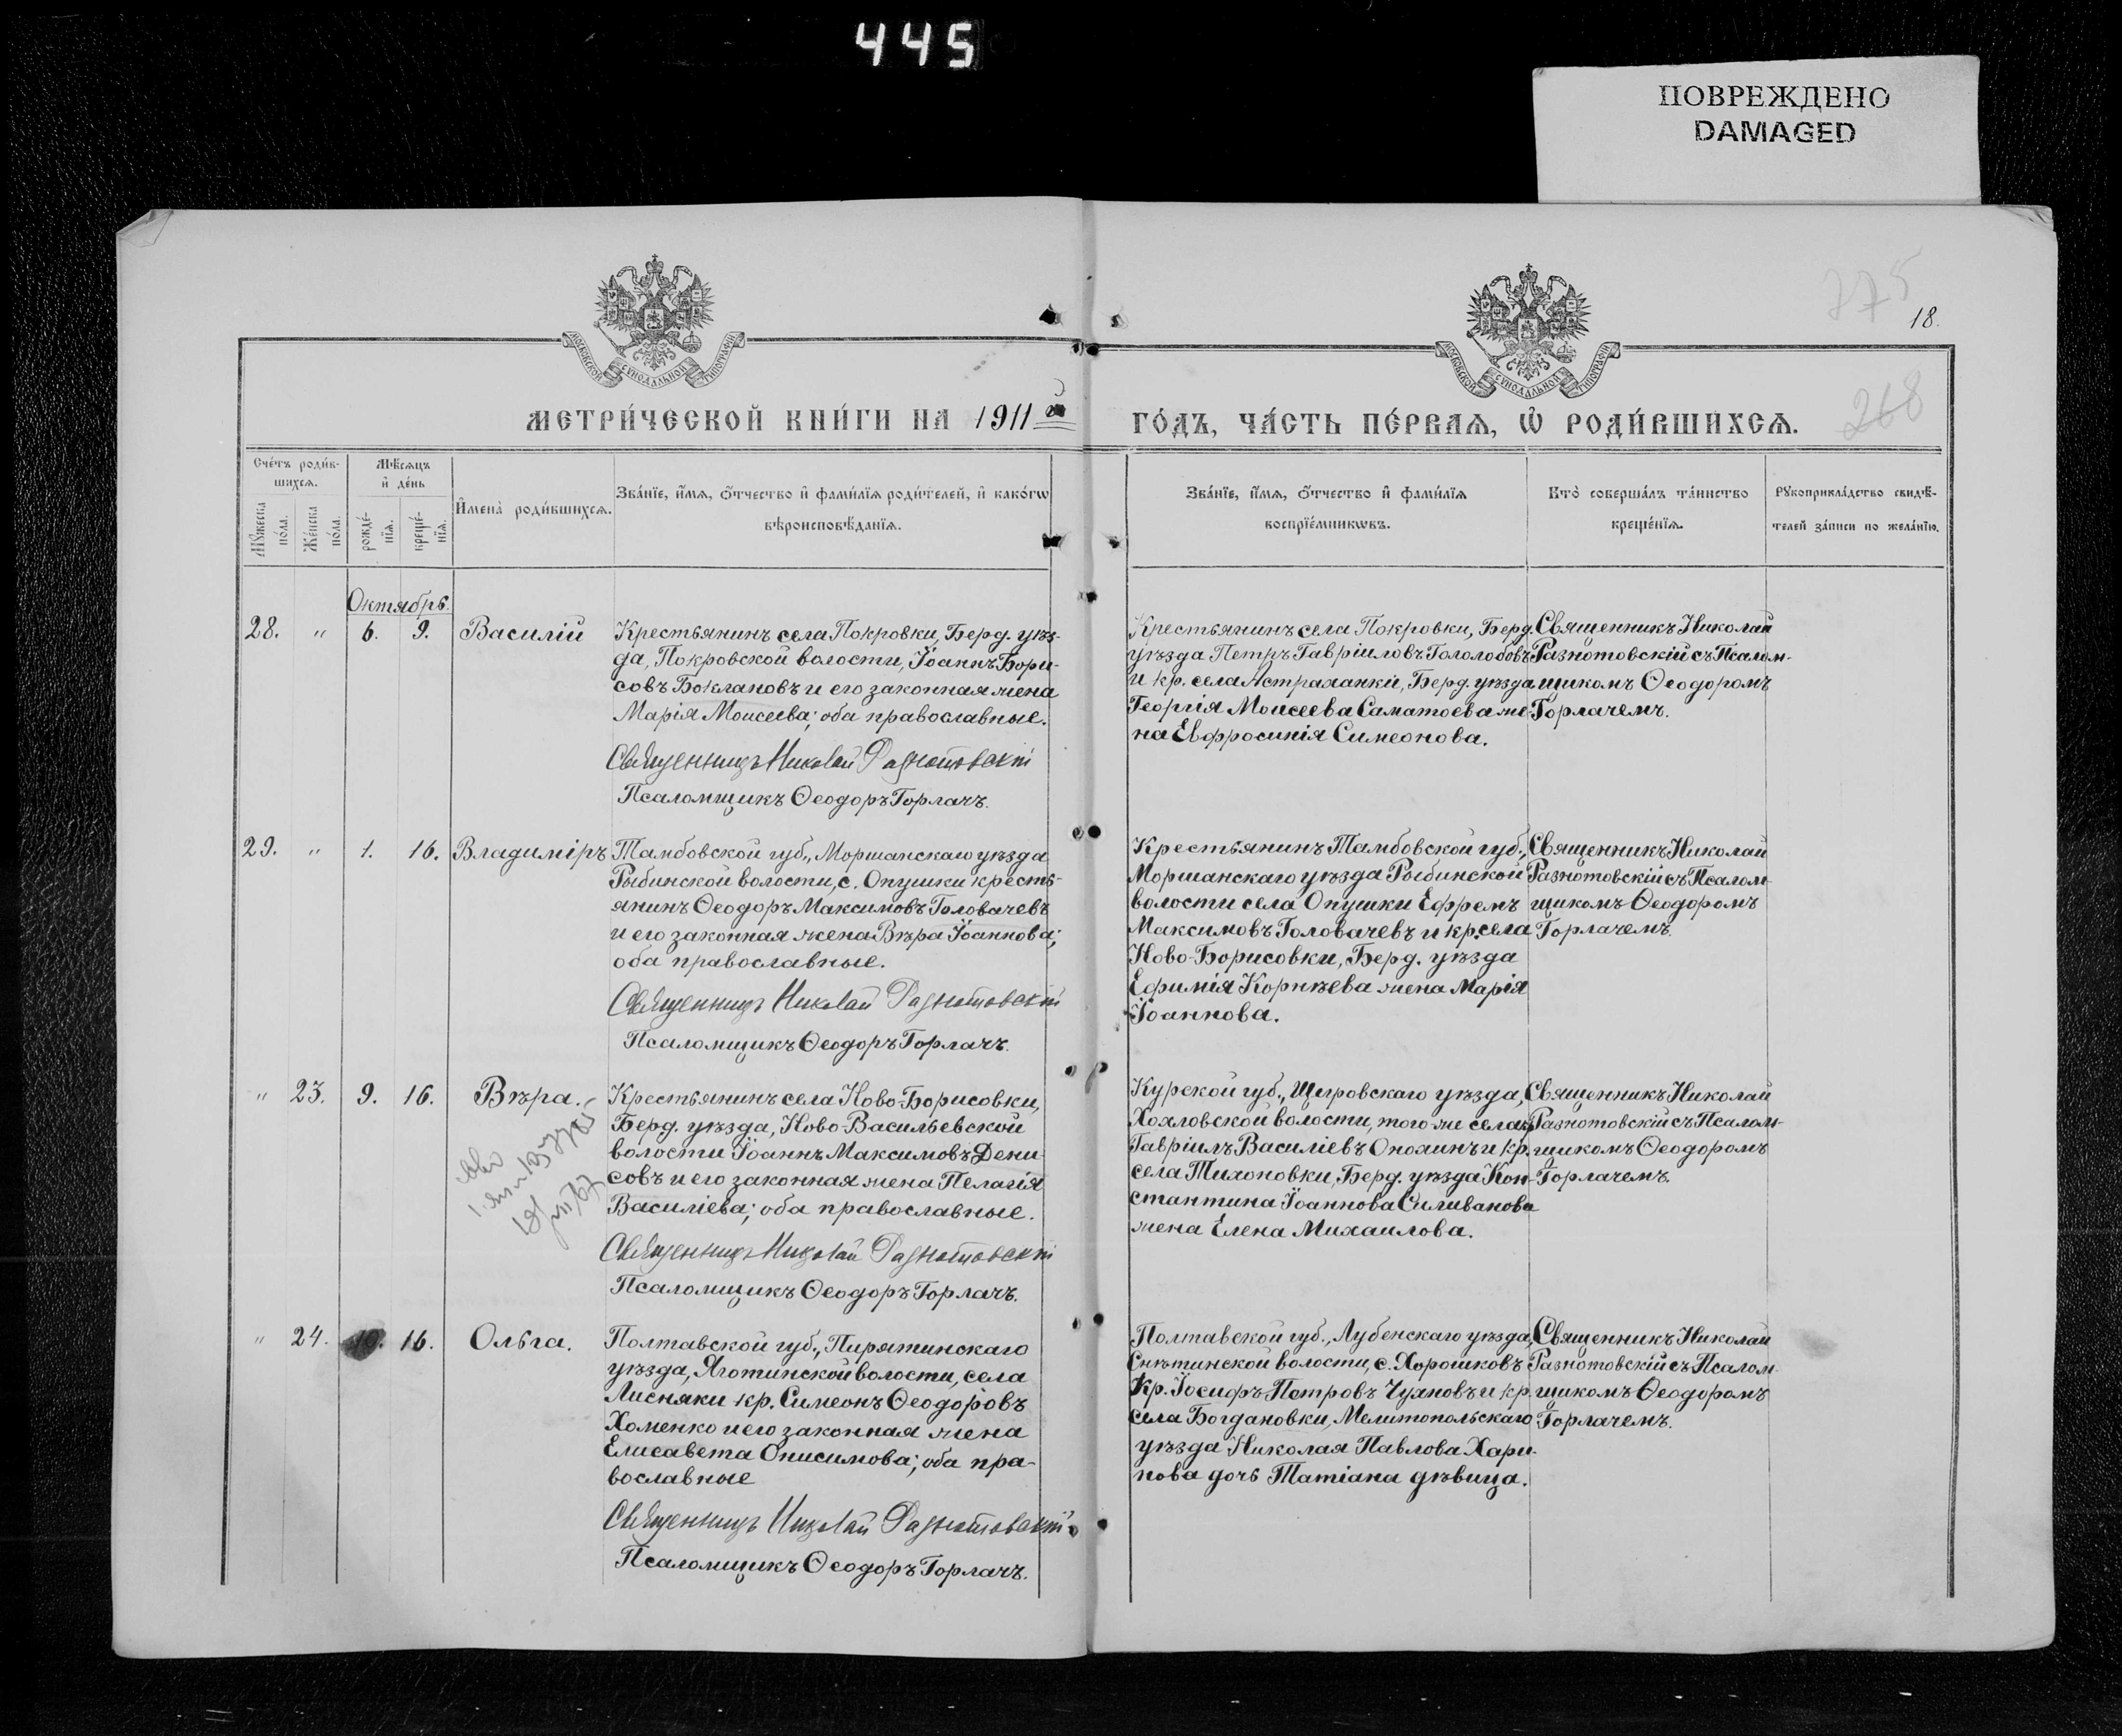 445
ПОВРЕЖДЕНО
DAMAGED
775
18.
268
МОСКОВСКОЙ СѴНОДАЛЬНОЙ ТИПОГРАФІИ
МОСКОВСКОЙ СѴНОДАЛЬНОЙ ТИПОГРАФІИ
МЕТРИ́ЧЕСКОЙ КНИ́ГИ НА 1911й
ГО́ДЪ, ЧА́СТЬ ПЕ́РВАѦ, Ѽ РОДИ́ВШИХСѦ.
Сче́тъ роди́в-
шихсѧ.
Мꙋ́жеска по́ла.
Же́нска по́ла.
Мѣ́сѧцъ
и҆ де́нь
рожде́-нїѧ.
креще́-нїѧ.
И҆мена̀ роди́вшихсѧ.
Зва́нїе, и҆́мѧ, ѻ҆́тчество и҆ фами́лїѧ роди́телей, и҆ како́гѡ
вѣроисповѣ́данїѧ.
Зва́нїе, и҆́мѧ, ѻ҆́тчество и҆ фами́лїѧ
воспрїе́мникѡвъ.
Кто̀ соверша́лъ та́инство
креще́нїѧ.
Рꙋкоприкла́дство свидѣ́-
телей за́писи по жела́нїю.
Октябрь.
28. " 6. 9. Василій
Крестьянинъ села Покровки, Берд. уѣз-
да, Покровской волости, Іоаннъ Бори-
совъ Боклановъ и его законная жена
Марія Моисеева; оба православные.
Священникъ Николай Разнотовскій
Псаломщикъ Ѳеодоръ Горлачъ.
Крестьянинъ села Покровки, Берд.
уѣзда Петръ Гавріиловъ Гололобовъ
и кр. села Астраханки, Берд. уѣзда
Георгія Моисеева Саматоева же-
на Евфросинія Симеонова.
Священникъ Николай
Разнотовскій съ Псалом-
щикомъ Ѳеодоромъ
Горлачемъ.
29. " 1. 16. Владиміръ
Тамбовской губ., Моршанскаго уѣзда
Рыбинской волости, с. Опушки кресть-
янинъ Ѳеодоръ Максимовъ Головачевъ
и его законная жена Вѣра Іоаннова;
оба православные.
Священникъ Николай Разнотовскій
Псаломщикъ Ѳеодоръ Горлачъ.
Крестьянинъ Тамбовской губ.,
Моршанскаго уѣзда Рыбинской
волости села Опушки Ефремъ
Максимовъ Головачевъ и кр. села
Ново-Борисовки, Берд. уѣзда
Ефимія Корнѣева жена Марія
Іоаннова.
Священникъ Николай
Разнотовскій съ Псалом-
щикомъ Ѳеодоромъ
Горлачемъ.
" 23. 9. 16. Вѣра.
Крестьянинъ села Ново-Борисовки,
Берд. уѣзда, Ново-Васильевской
волости Іоаннъ Максимовъ Дени-
совъ и его законная жена Пелагія
Василіева; оба православные.
Священникъ Николай Разнотовскій
Псаломщикъ Ѳеодоръ Горлачъ.
Курской губ., Щигровскаго уѣзда,
Хохловской волости, того-же села
Гавріилъ Василіевъ Онохинъ и кр.
села Тихоновки, Берд. уѣзда Кон-
стантина Іоаннова Силиванова
жена Елена Михаилова.
Священникъ Николай
Разнотовскій съ Псалом-
щикомъ Ѳеодоромъ
Горлачемъ.
" 24. 10. 16. Ольга.
Полтавской губ., Пирятинскаго
уѣзда, Яготинской волости, села
Лисняки кр. Симеонъ Ѳеодоровъ
Хоменко и его законная жена
Елисавета Онисимова; оба пра-
вославные
Священникъ Николай Разнотовскій
Псаломщикъ Ѳеодоръ Горлачъ.
Полтавской губ., Лубенскаго уѣзда,
Снѣтинской волости, с. Хорошковъ
кр. Іосифъ Петровъ Чухновъ и кр.
села Богдановки, Мелитопольскаго
уѣзда Николая Павлова Хари-
нова дочь Татіана дѣвица.
Священникъ Николай
Разнотовскій съ Псалом-
щикомъ Ѳеодоромъ
Горлачемъ.